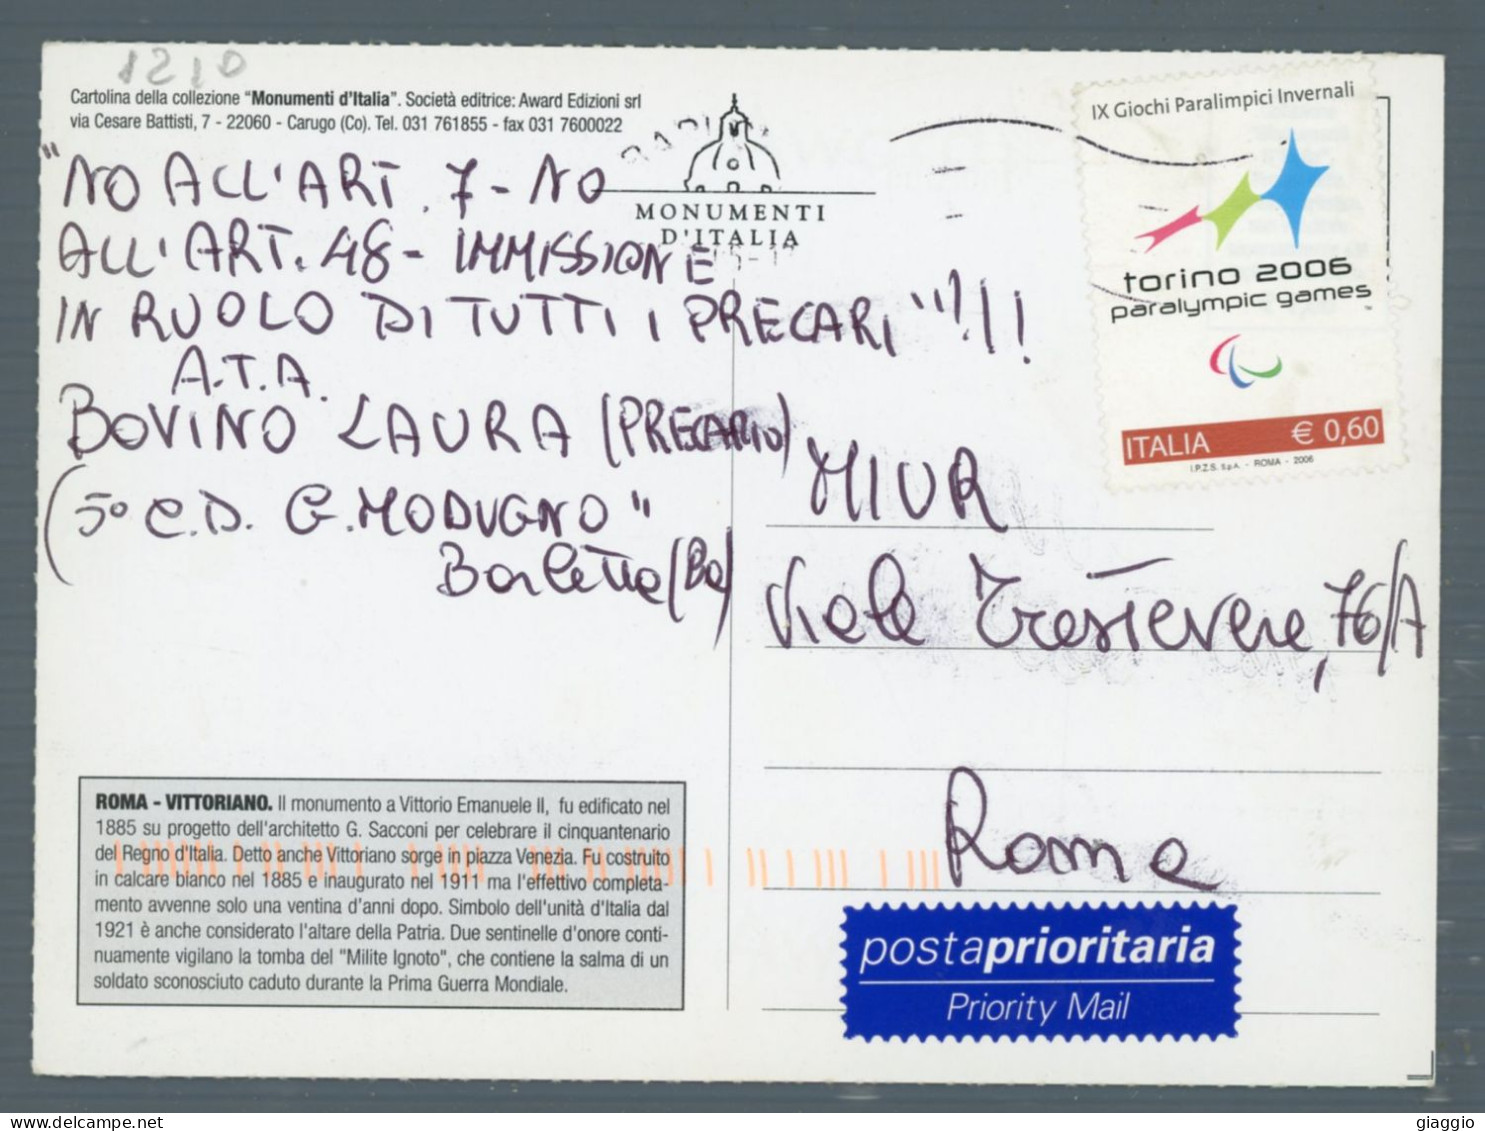 1210
Cartolina della collezione "Monumenti d'Italia". Società editrice: Award Edizioni srl
via Cesare Battisti, 7 - 22060 - Carugo (Co). Tel. 031 761855 - fax 031 7600022
MONUMENTI
D'ITALIA
"NO ALL'ART. 7 - NO
ALL'ART. 48 - IMMISSIONE
IN RUOLO DI TUTTI I PRECARI"!!!!
A.T.A.
BOVINO LAURA (PRECARIO)
(5° C.D. G. MODUGNO"
Barletta (Ba)
IX Giochi Paralimpici Invernali
torino 2006
paralympic games
ITALIA € 0,60
I.P.Z.S. S.p.A. - ROMA - 2006
MIUR
Viale Trastevere, 76/A
Roma
ROMA - VITTORIANO. Il monumento a Vittorio Emanuele II, fu edificato nel
1885 su progetto dell'architetto G. Sacconi per celebrare il cinquantenario
del Regno d'Italia. Detto anche Vittoriano sorge in piazza Venezia. Fu costruito
in calcare bianco nel 1885 e inaugurato nel 1911 ma l'effettivo completa-
mento avvenne solo una ventina d'anni dopo. Simbolo dell'unità d'Italia dal
1921 è anche considerato l'altare della Patria. Due sentinelle d'onore conti-
nuamente vigilano la tomba del "Milite Ignoto", che contiene la salma di un
soldato sconosciuto caduto durante la Prima Guerra Mondiale.
postaprioritaria
Priority Mail
giaggio